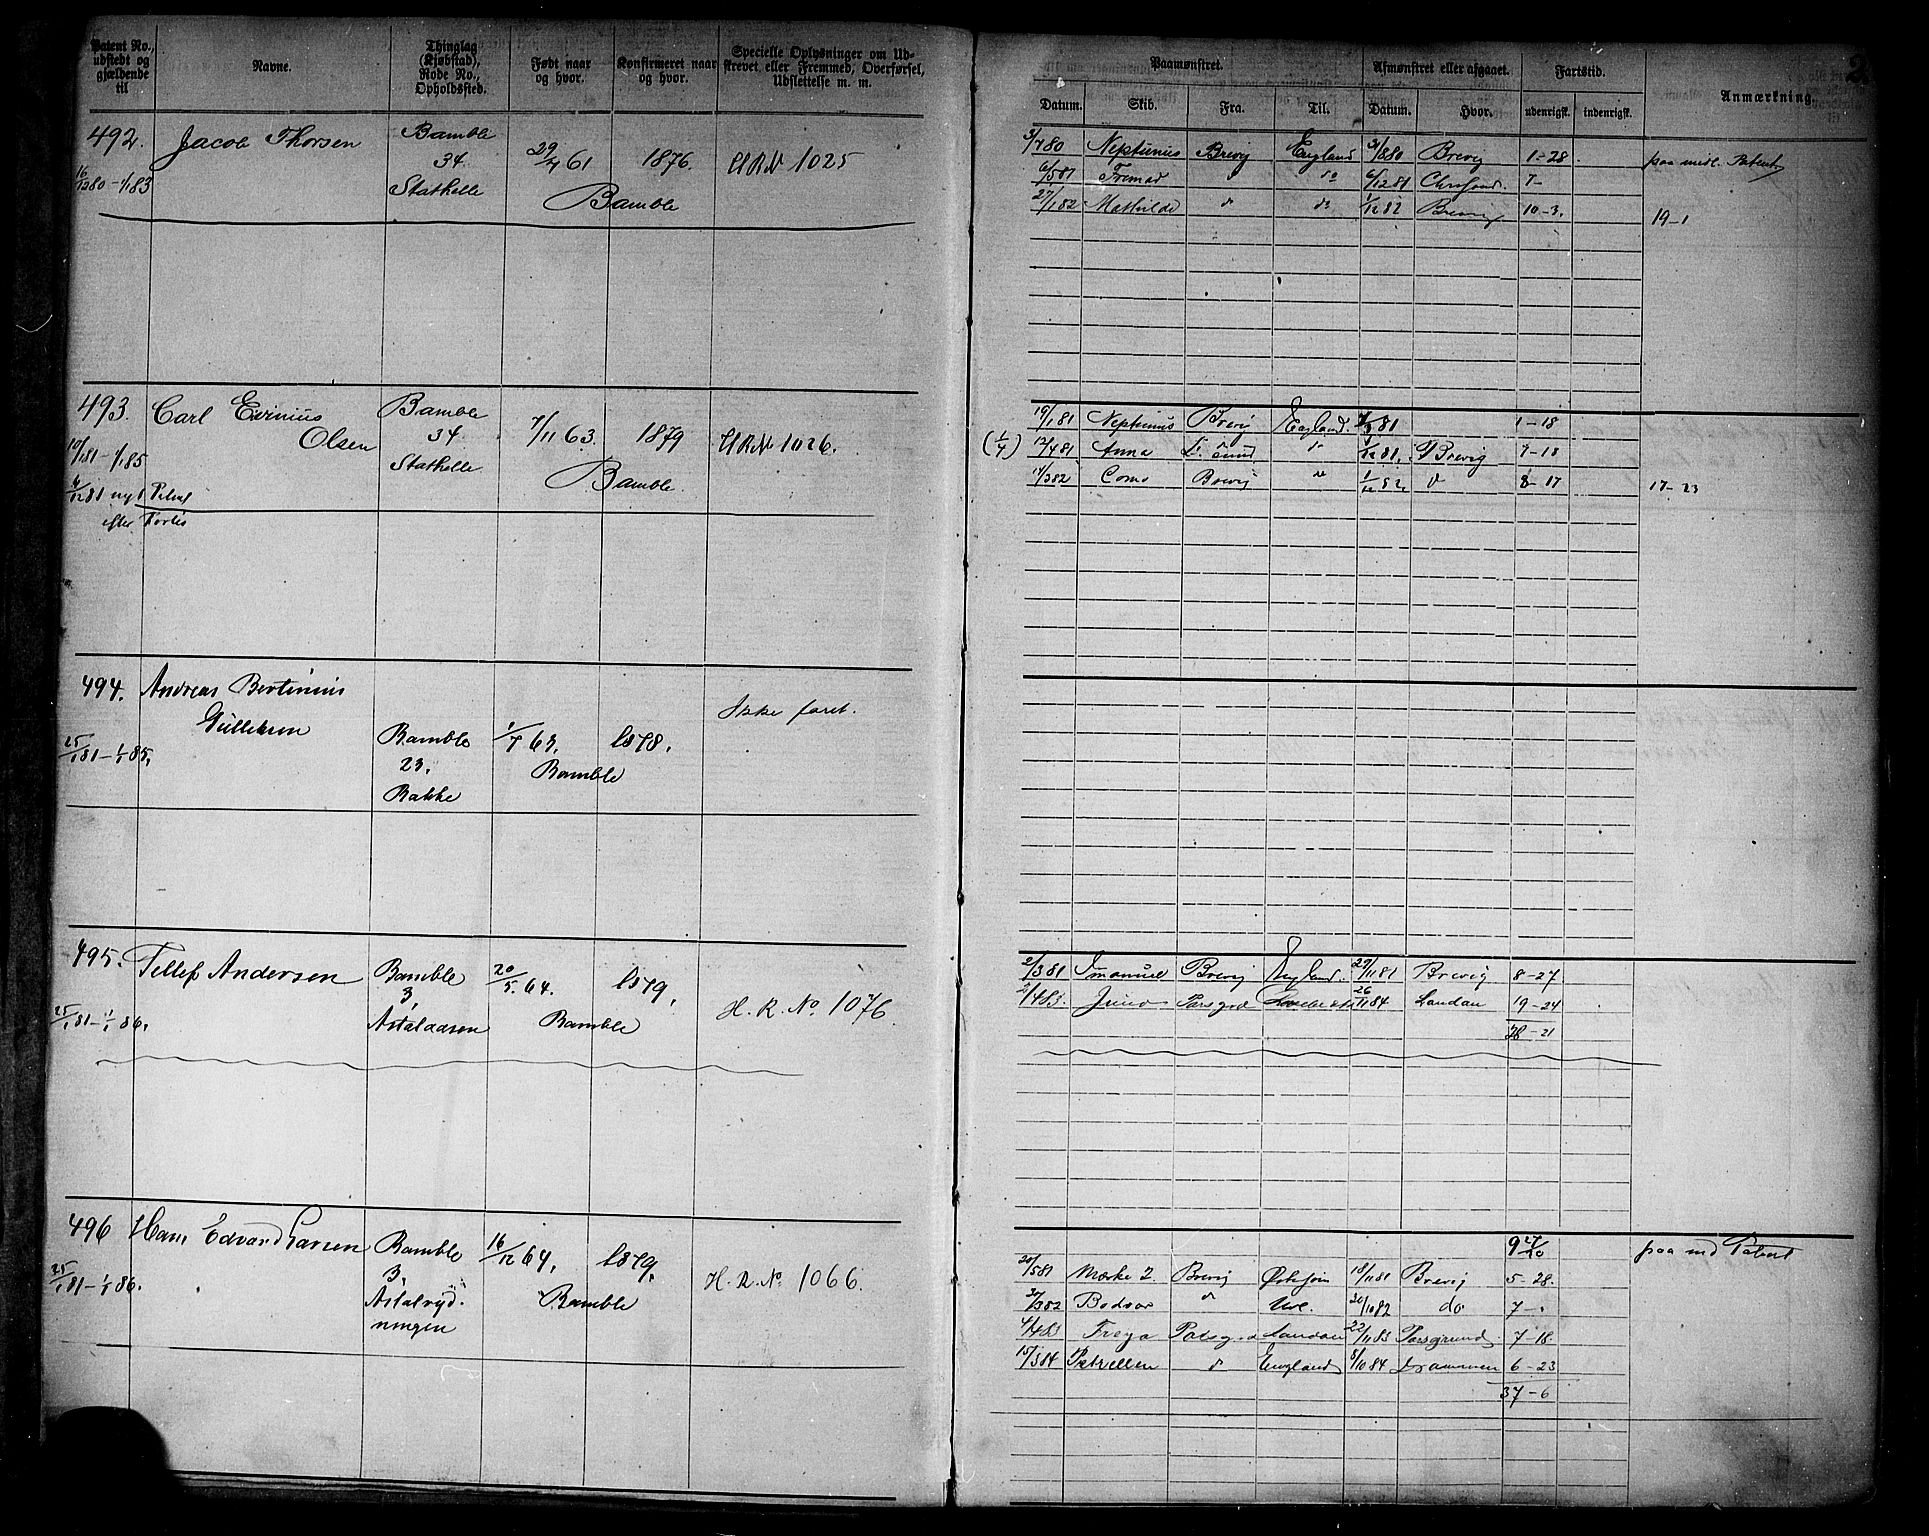 Patent No., udstedt og gjældende til
Navne.
Thinglag (Kjøbstad), Rode No., Opholdssted.
Født naar og hvor.
Konfirmeret naar og hvor.
Specielle Oplysninger om Udskrevet eller Fremmed, Overførsel, Udslettelse m. m.
Paamønstret.
Afmønstret eller afgaaet.
Fartstid.
Anmærkning.
Datum. Skib. Fra. Til. Datum. Hvor. udenrigsk. indenrigsk.
2
492. Jacob Thorsen Bamble 29/4 61 1876. H R N 1025
16/12 80 - 1/1 83 34
Stathelle Bamble
3/7 80 Neptunus Brevig England 31/8 80 Brevig 1-28 paa midl. Patent
6/5 81 Fremad " do 6/12 81 Chrsand. 7-
27/1 82 Mathilde " do 1/12 82 Brevig 10-3. 19-1
493. Carl Evinius Olsen Bamble 7/11 63. 1879 H R N 1026.
10/1 81 - 1/1 85 34
Stathelle Bamble.
4/12 81 nyt Patent
efter Forlis
19/1 81 Neptunus Brevig England. 81 1-18
(1/4) 12/4 81 Anna " 1/12 81. Brevig 7-18
17/3 82 Como Brevig " 1/12 82, " 8-17 17-23
494. Andreas Bertinius Gulleksen Ikke faret.
25/1 81 - 1/1 85, Bamble 1/7 63. 1878.
23. Bamble
Bakke
495. Tellef Andersen Bamble 20/5. 64. 1879. H. R. No. 1076
25/1 81 - 1/1 86. 3, Bamble
Astadaasen
2/3 81 Imanuel Brevig England. 29/11 81 Brevig 8-27
2/4 83. Juno Porsgrd 26/11 84 Landau 19-24
-21
496 Hans Edvard Larsen Bamble 16/12 64. 1879. H. R. No. 1066.
25/1 81 - 1/1 86. 3, Bamble
Astadryd-
ningen
9 27/20 paa md Patent
20/5 81 Mærke 2. Brevig 18/11 81 Brevig 5-28.
Bodvar " 20/10 82 do 7-
4/4 83 Freya Porsg. d 22/11 83 Porsgrund 7-18.
15/3 84 Petrellen " England 8/10 84 Drammen 6-23
37-6